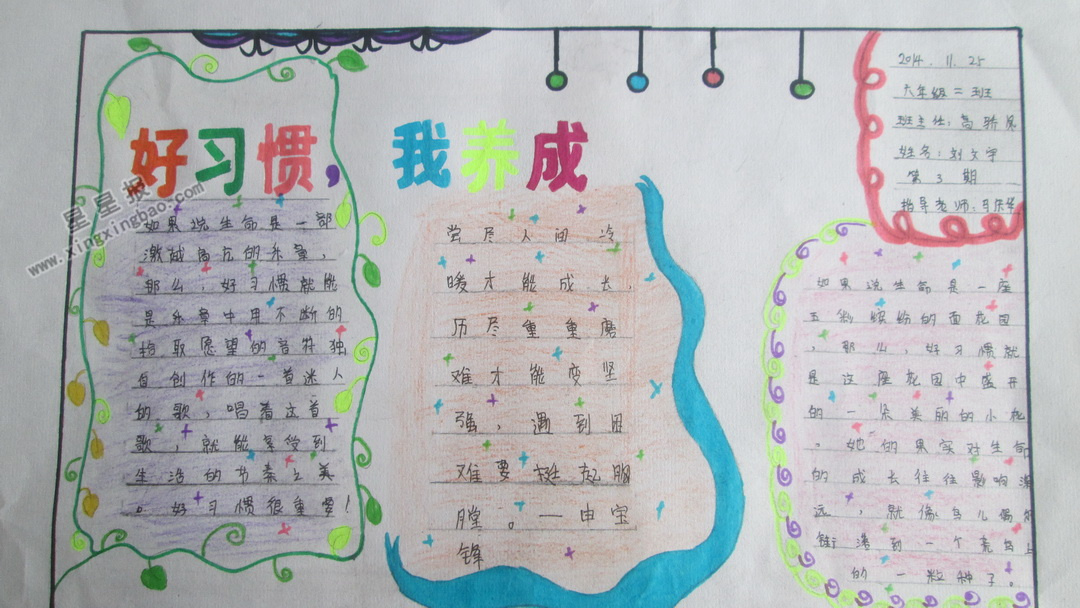 好习惯，我养成
2014.11.25
六年级二班
班主任：高
姓名：刘文宇
第3期
指导老师：
如果说生命是一部
激越高亢的乐章，
那么，好习惯就能
是乐章中用不断的
摘取愿望的音符独
自创作的一首迷人
的歌，唱着这首
歌，就能享受到
生活的节奏之美
。好习惯很重要！
尝尽人间冷
暖才能成长，
历尽重重磨
难才能变坚
强，遇到困
难要挺起胸
膛。一申宝
锋
如果说生命是一座
五彩缤纷的面花园
，那么，好习惯就
是这座花园中盛开
的一朵美丽的小花
。她的果实对生命
的成长往往影响深
远，就像鸟儿偶尔
衔落到一个荒岛上
的一粒种子。
星星报
www.xingxingbao.com